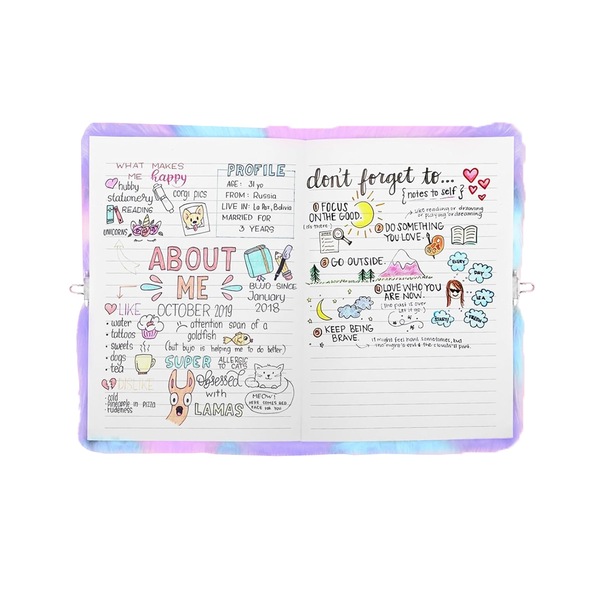 WHAT MAKES
ME happy
hubby
stationery
corgi pics
READING
UNICORNS
PROFILE
AGE: 31 yo
FROM: Russia
LIVE IN: La Paz, Bolivia
MARRIED FOR
3 YEARS
ABOUT
ME
BUJO SINCE
January
2018
OCTOBER 2019
LIKE
• water
• tattoos
• sweets
• dogs
• tea
attention span of a
goldfish
(but bujo is helping me to do better)
SUPER ALLERGIC
TO CATS
obsessed
with
LAMAS
MEOW!
HERE COMES BED
FACE FOR YOU
DISLIKE
• cold
• pineapple in pizza
• rudeness
don't forget to...
{notes to self}
1 FOCUS
ON THE GOOD.
(it's there)
2 DO SOMETHING
YOU LOVE.
like reading or drawing
or playing or dreaming
3 GO OUTSIDE.
4 LOVE WHO YOU
ARE NOW.
(the past is over
let it go)
EVERY
DAY
5 KEEP BEING
BRAVE.
it might feel hard sometimes, but